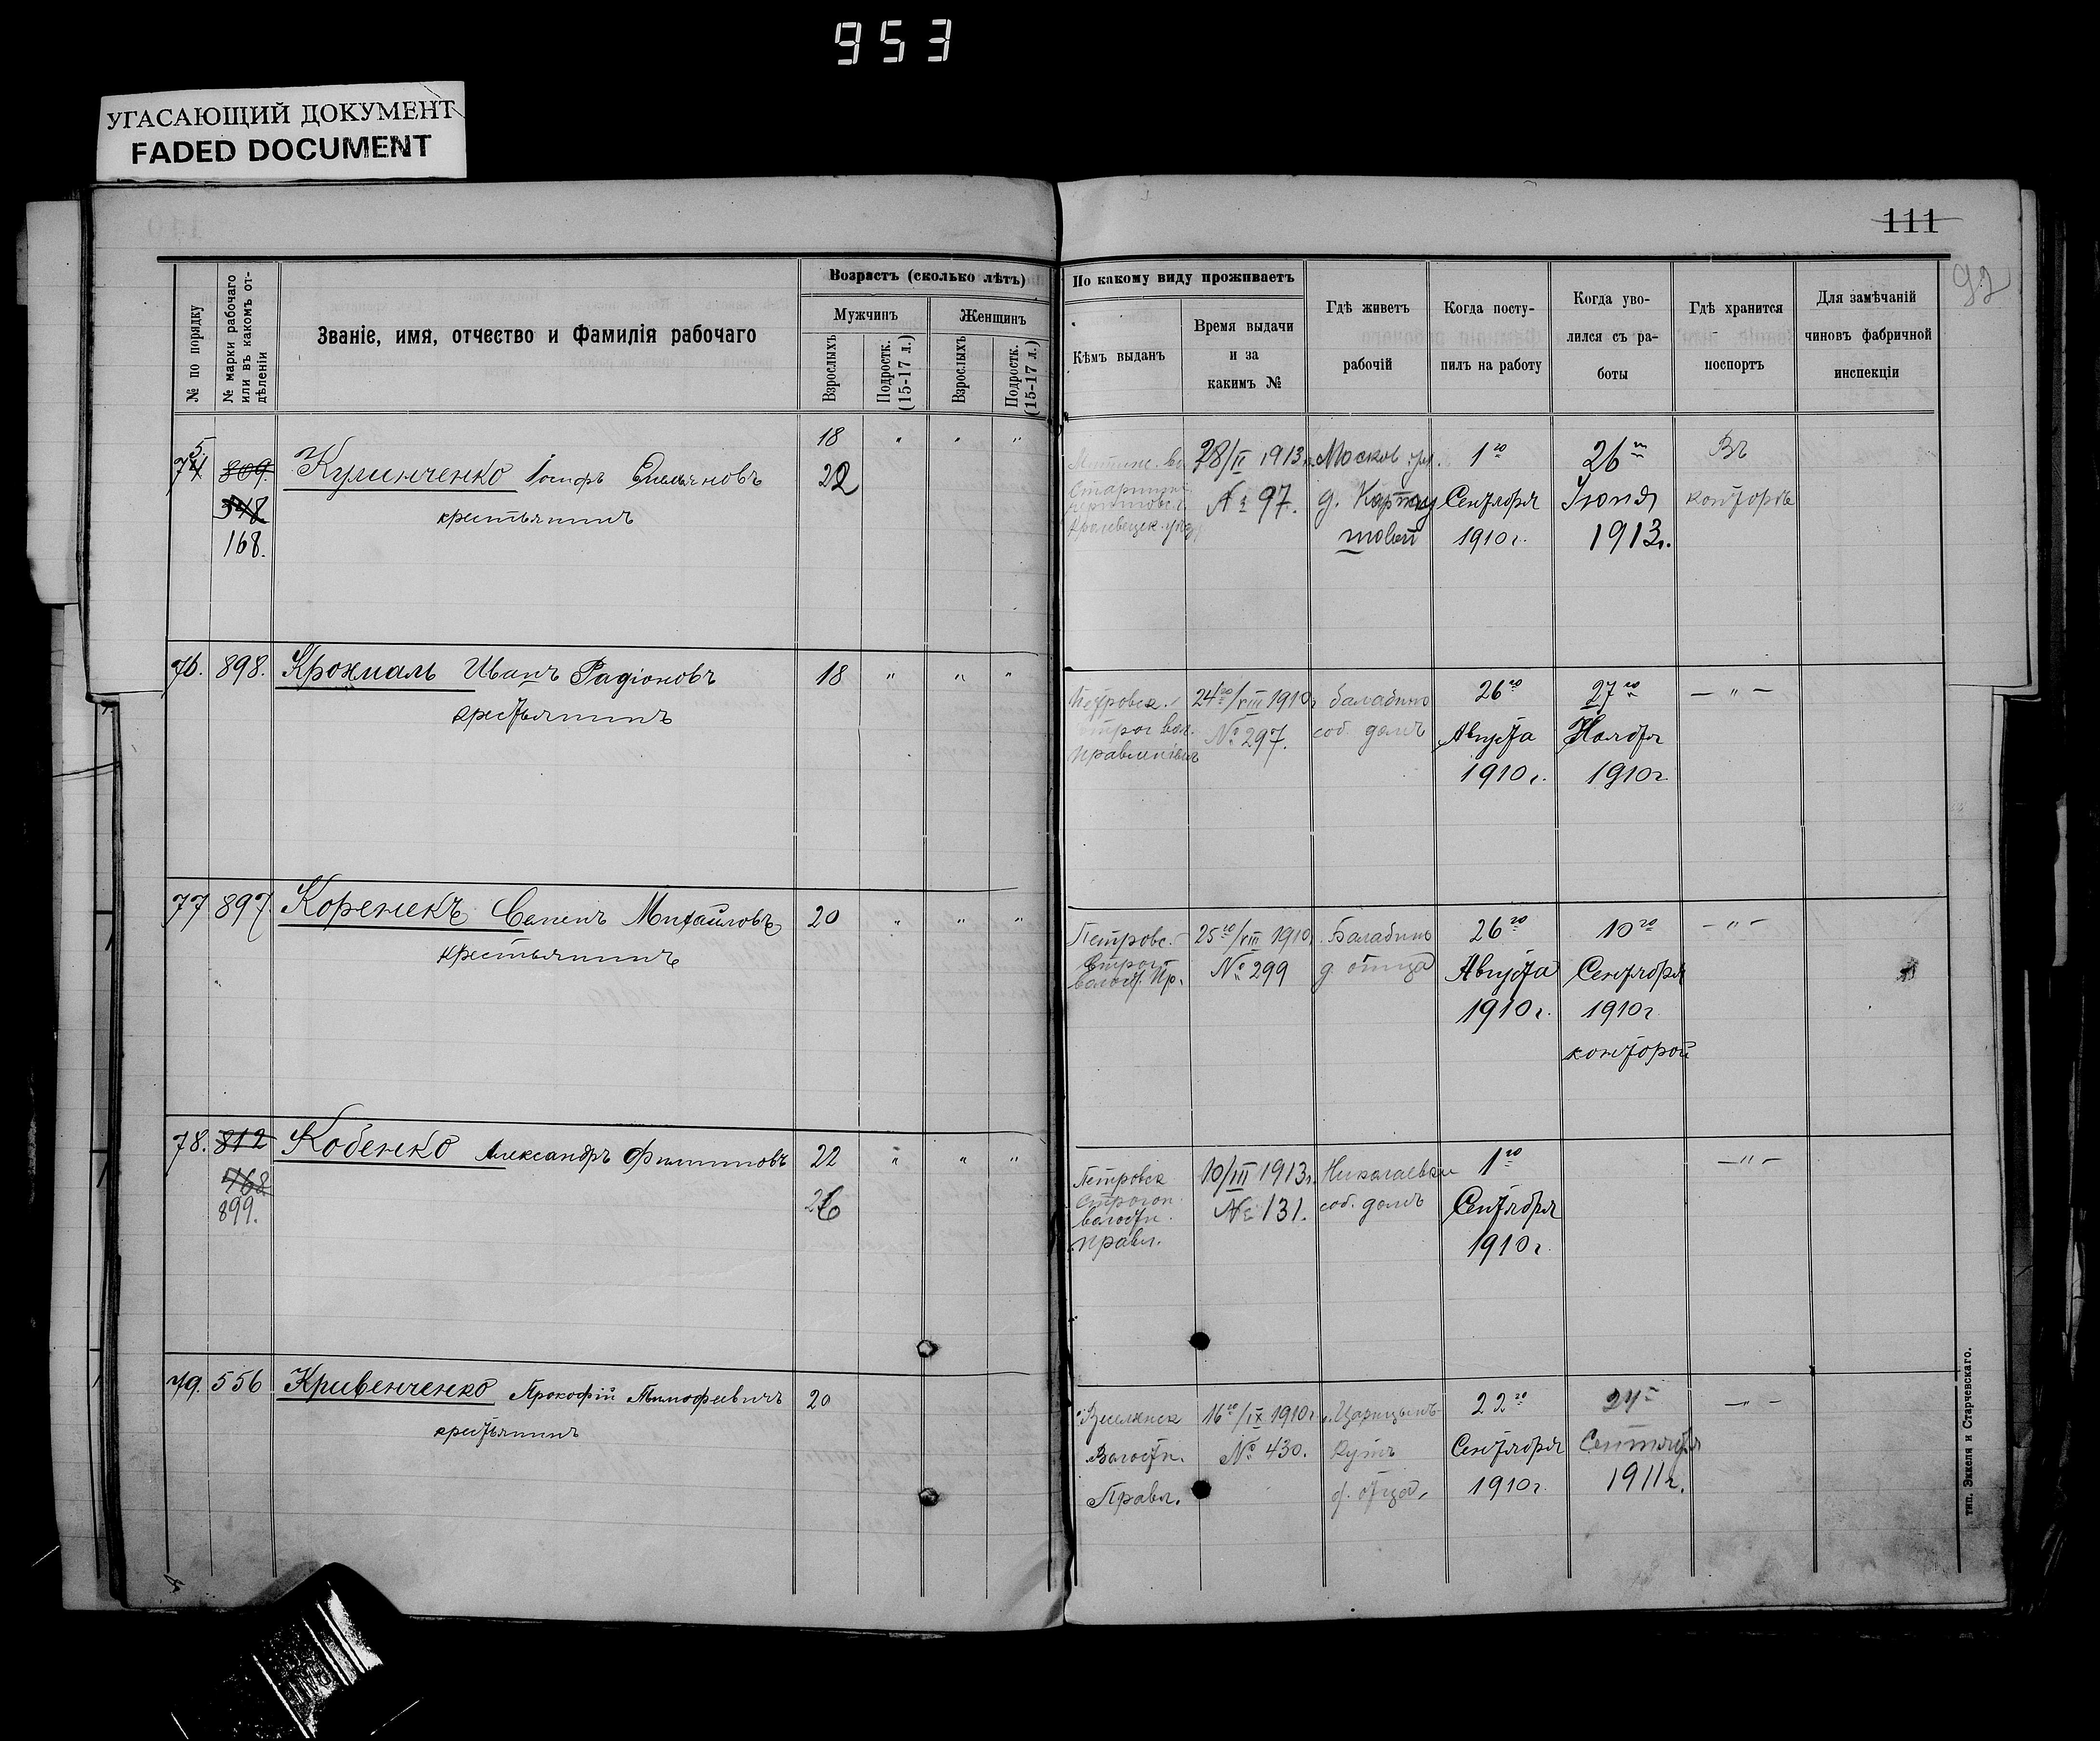 953
УГАСАЮЩИЙ ДОКУМЕНТ
FADED DOCUMENT
111
92
№ по порядку
№ марки рабочаго
или въ какомъ от-
дѣленіи
Званіе, имя, отчество и Фамилія рабочаго
Возрастъ (сколько лѣтъ)
Мужчинъ
Женщинъ
Взрослыхъ
Подростк.
(15-17 л.)
Взрослыхъ
Подростк.
(15-17 л.)
По какому виду проживаетъ
Кѣмъ выданъ
Время выдачи
и за
какимъ №
Гдѣ живетъ
рабочій
Когда посту-
пилъ на работу
Когда уво-
лился съ ра-
боты
Гдѣ хранится
паспортъ
Для замѣчаній
чиновъ фабричной
инспекціи
75
809.
348
168.
Кулинченко Іосифъ Емельяновъ
крестьянинъ
18
22
28/II 1913г.
№ 97.
Москов. ул.
1го
Сентября
1910 г.
26го
Іюня
1913г.
Въ
конторѣ
76. 898. Крохмаль Иванъ Радіоновъ
крестьянинъ
18
Петровск.
вол.
Правленіемъ
24го/VIII 1910г
№ 297.
Балабино
соб. домъ
26го
Августа
1910 г.
27го
Ноября
1910г
— " —
77 897. Коренекъ Семенъ Михайловъ
крестьянинъ
20
Петровс.-
Строг.
волост. Пр.
25го/VIII 1910
№ 299
Балабино
д. отца
26го
Августа
1910 г.
10го
Сентября
1910г
конторой
— " —
78. 812
468
899.
Кобенко Александръ Филипповъ
22
26
Петровск
Строгон.
волостн.
Правл.
10/III 1913г.
№ 131.
Николаевка
соб. домъ
1го
Сентября
1910г
— " —
79. 556 Кривенченко Прокофій Тимофеевичъ
крестьянинъ
20
Волостн.
Правл.
16го/IX 1910г
№ 430.
Царицынъ
Кутъ
д. отца,
22го
Сентября
1910г
24
Сентября
1911г.
— " —
тип. Эккеля и Старчевскаго.